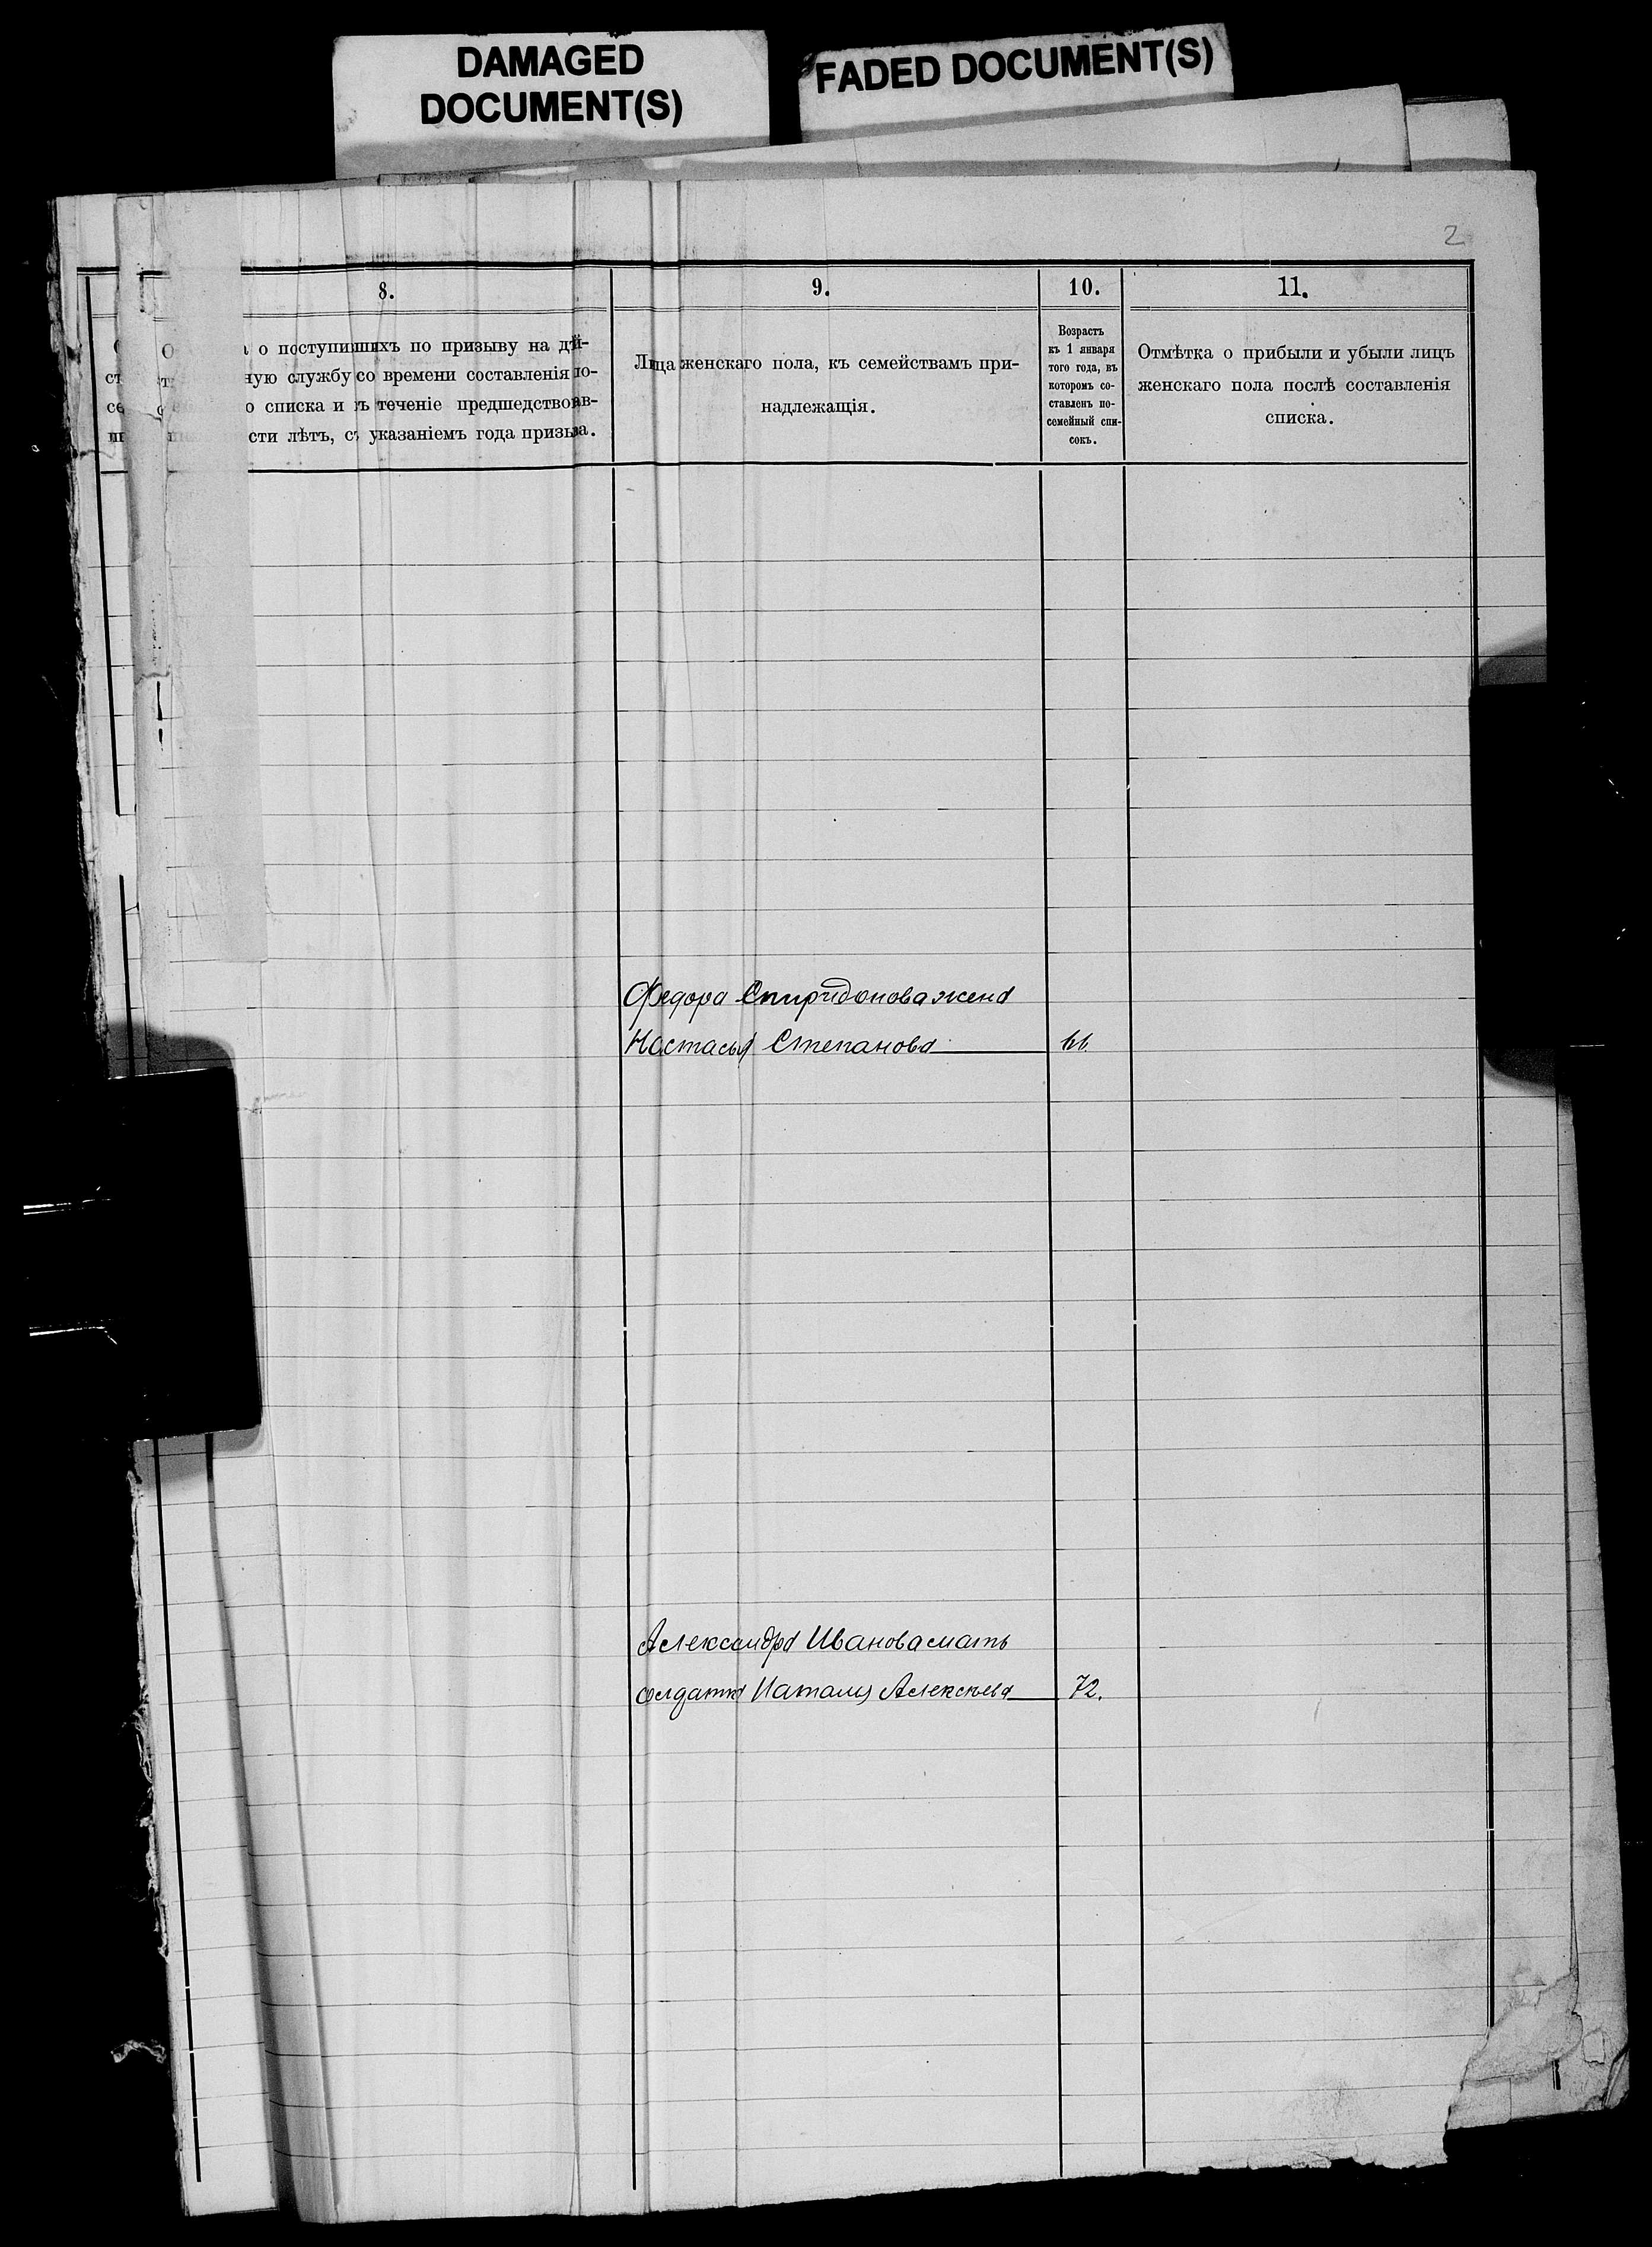 DAMAGED
DOCUMENT(S)
FADED DOCUMENT(S)
2
8.
о поступившихъ по призыву на дѣй-
ную службу со времени составленія по-
о списка и въ теченіе предшедствовав-
сти лѣтъ, съ указаніемъ года призыва.
9.
Лица женскаго пола, къ семействамъ при-
надлежащія.
10.
Возрастъ
къ 1 января
того года, въ
которомъ со-
ставленъ по-
семейный спи-
сокъ.
11.
Отмѣтка о прибыли и убыли лицъ
женскаго пола послѣ составленія
списка.
Федора Спиридонова жена
Настасья Степанова 66.
Александра Иванова мать
солдатка Наталья Алексѣева 72.